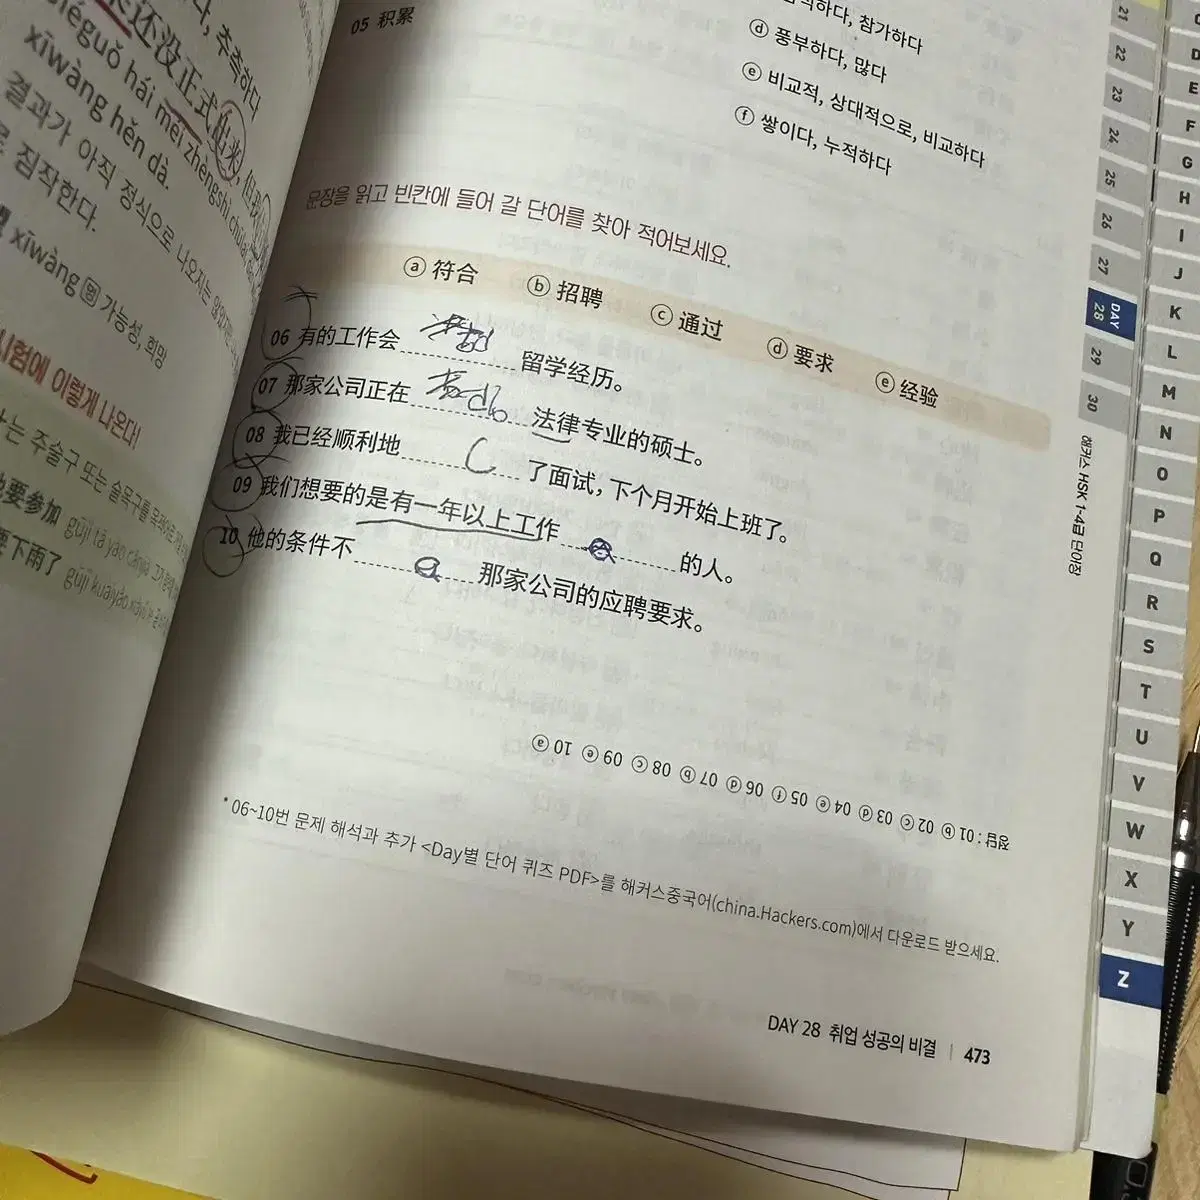 추측하다
还没正式出来,
xièguǒ hái méi zhèngshì chūlai,
xīwàng hěn dà.
결과가 아직 정식으로 나오지는 않았지만
짐작한다.
xīwàng 명 가능성, 희망
시험에 이렇게 나온다!
는 주술구 또는 술목구를 목적어로
他要参加 gūjì tā yào cānjiā
要下雨了 gūjì kuàiyào xiàyǔ le
05 积累
참가하다
ⓓ 풍부하다, 많다
ⓔ 비교적, 상대적으로, 비교하다
ⓕ 쌓이다, 누적하다
문장을 읽고 빈칸에 들어 갈 단어를 찾아 적어보세요.
ⓐ 符合 ⓑ 招聘 ⓒ 通过 ⓓ 要求 ⓔ 经验
06 有的工作会 留学经历。
07 那家公司正在 法律专业的硕士。
08 我已经顺利地 C 了面试,下个月开始上班了。
09 我们想要的是有一年以上工作 的人。
10 他的条件不 a 那家公司的应聘要求。
정답: 01 ⓑ 02 ⓒ 03 ⓓ 04 ⓔ 05 ⓕ 06 ⓓ 07 ⓑ 08 ⓒ 09 ⓔ 10 ⓐ
* 06~10번 문제 해석과 추가 <Day별 단어 퀴즈 PDF>를 해커스중국어(china.Hackers.com)에서 다운로드 받으세요.
DAY 28 취업 성공의 비결 | 473
21
22
23
24
25
26
27
DAY 28
29
30
해커스 HSK 1-4급 단어장
D
E
F
G
H
I
J
K
L
M
N
O
P
Q
R
S
T
U
V
W
X
Y
Z